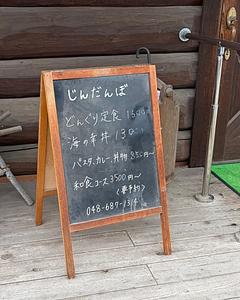 じんだんぼ
どんぐり定食 1500円
海の幸丼 1300円
パスタ、カレー、丼物 850円〜
和食コース 3500円〜
(要予約)
048-687-1314